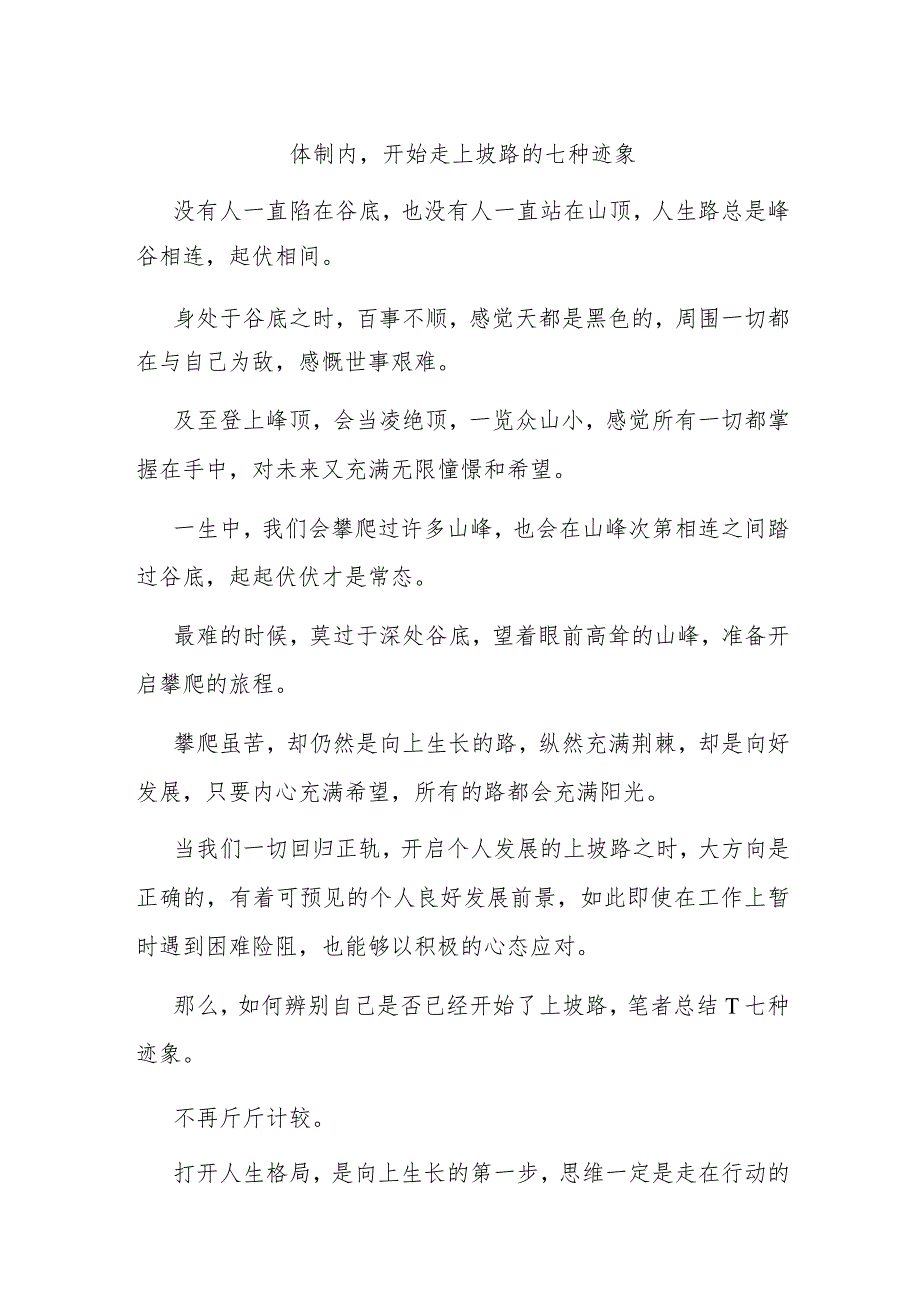 体制内，开始走上坡路的七种迹象
没有人一直陷在谷底，也没有人一直站在山顶，人生路总是峰
谷相连，起伏相间。
身处于谷底之时，百事不顺，感觉天都是黑色的，周围一切都
在与自己为敌，感慨世事艰难。
及至登上峰顶，会当凌绝顶，一览众山小，感觉所有一切都掌
握在手中，对未来又充满无限憧憬和希望。
一生中，我们会攀爬过许多山峰，也会在山峰次第相连之间踏
过谷底，起起伏伏才是常态。
最难的时候，莫过于深处谷底，望着眼前高耸的山峰，准备开
启攀爬的旅程。
攀爬虽苦，却仍然是向上生长的路，纵然充满荆棘，却是向好
发展，只要内心充满希望，所有的路都会充满阳光。
当我们一切回归正轨，开启个人发展的上坡路之时，大方向是
正确的，有着可预见的个人良好发展前景，如此即使在工作上暂
时遇到困难险阻，也能够以积极的心态应对。
那么，如何辨别自己是否已经开始了上坡路，笔者总结T七种
迹象。
不再斤斤计较。
打开人生格局，是向上生长的第一步，思维一定是走在行动的